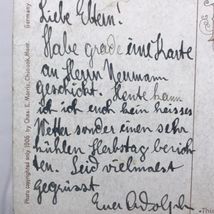 Liebe Eltern!
Habe grade eine Karte
an Herrn Neumann
geschickt. Heute kann
ich euch kein heisses
Wetter sondern einen sehr
kühlen Herbstag berich
ten. Seid vielmals
gegrüsst
Euer Adolph
Photo copyrighted only 1906 by Chas. E. Morris, Chinook, Mont.
Germany